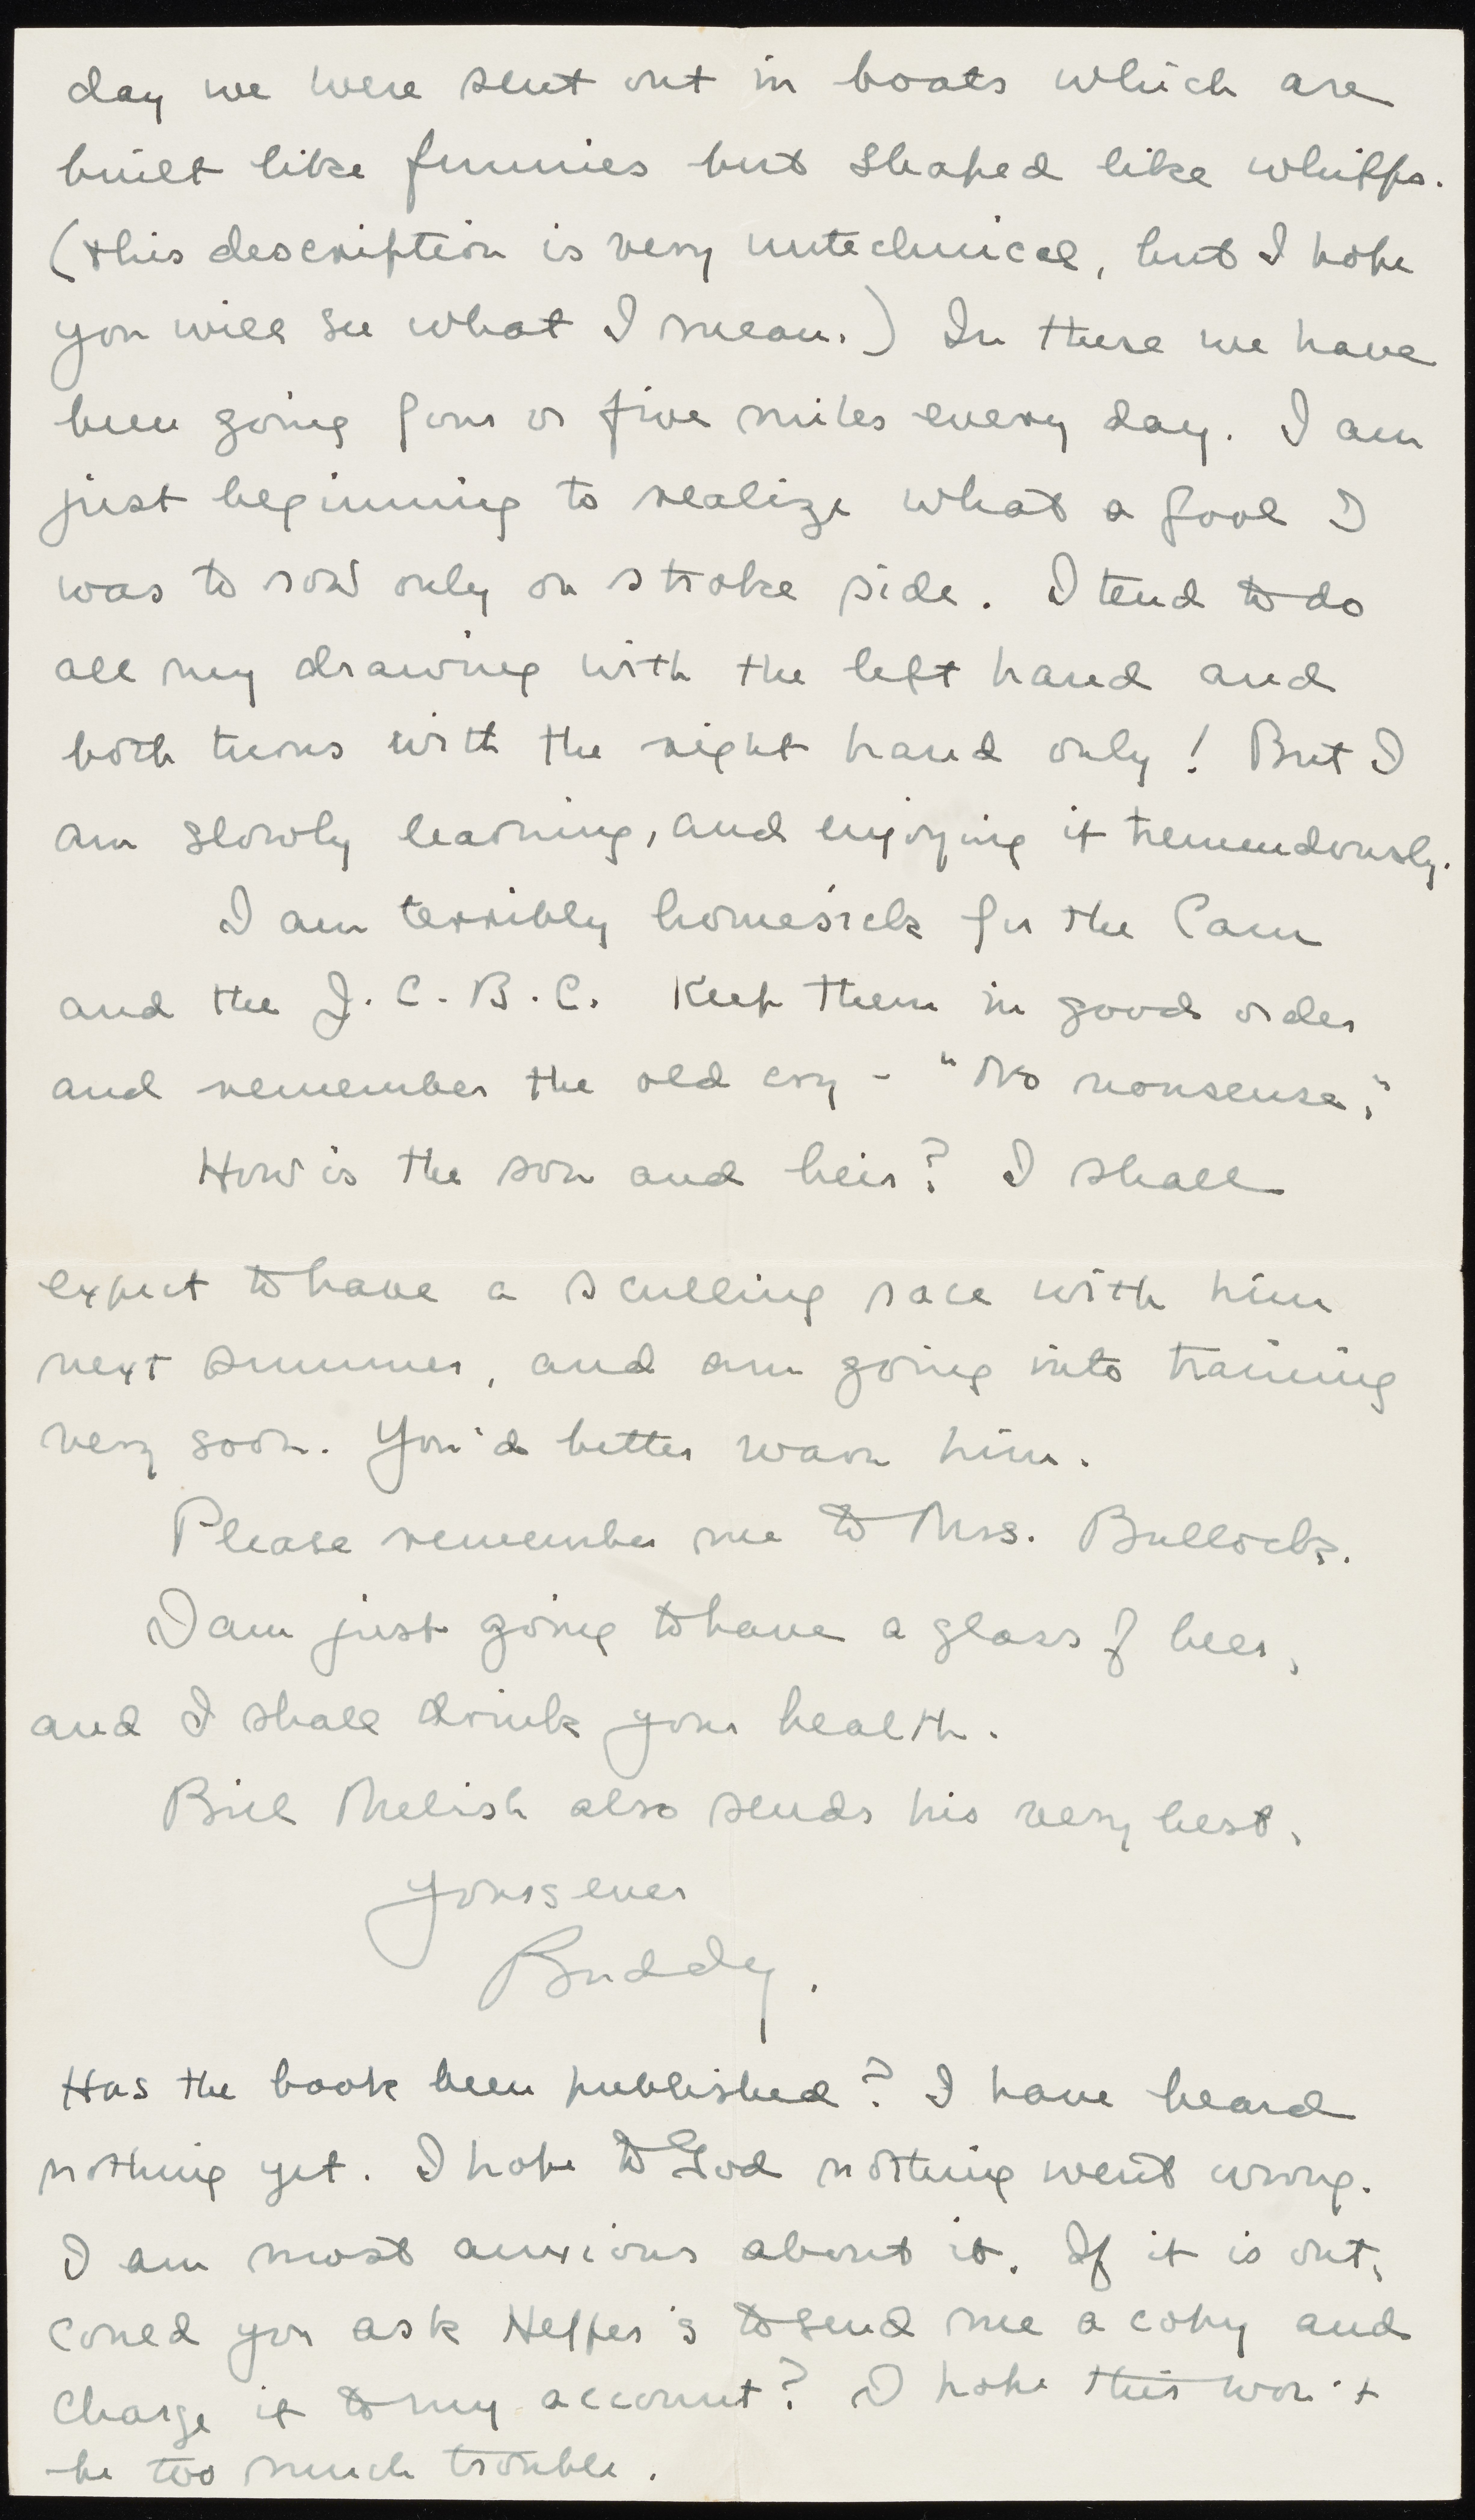 day we were sent out in boats which are
built like funnies but shaped like whiffs.
(this description is very untechnical, but I hope
you will see what I mean.) In these we have
been going four or five miles every day. I am
just beginning to realize what a fool I
was to row only on stroke side. I tend to do
all my drawing with the left hand and
both turns with the right hand only! But I
am slowly learning, and enjoying it tremendously.
I am terribly homesick for the Cam
and the J.C.B.C. Keep them in good order
and remember the old cry - "No nonsense."
How is the son and heir? I shall
expect to have a sculling race with him
next summer, and am going into training
very soon. You'd better warn him.
Please remember me to Mrs. Bullock.
I am just going to have a glass of beer,
and I shall drink your health.
Bill Melish also sends his very best.
Yours ever
Buddy.
Has the book been published? I have heard
nothing yet. I hope to God nothing went wrong.
I am most anxious about it. If it is out,
could you ask Heffer's to send me a copy and
charge it to my account? I hope this won't
be too much trouble.